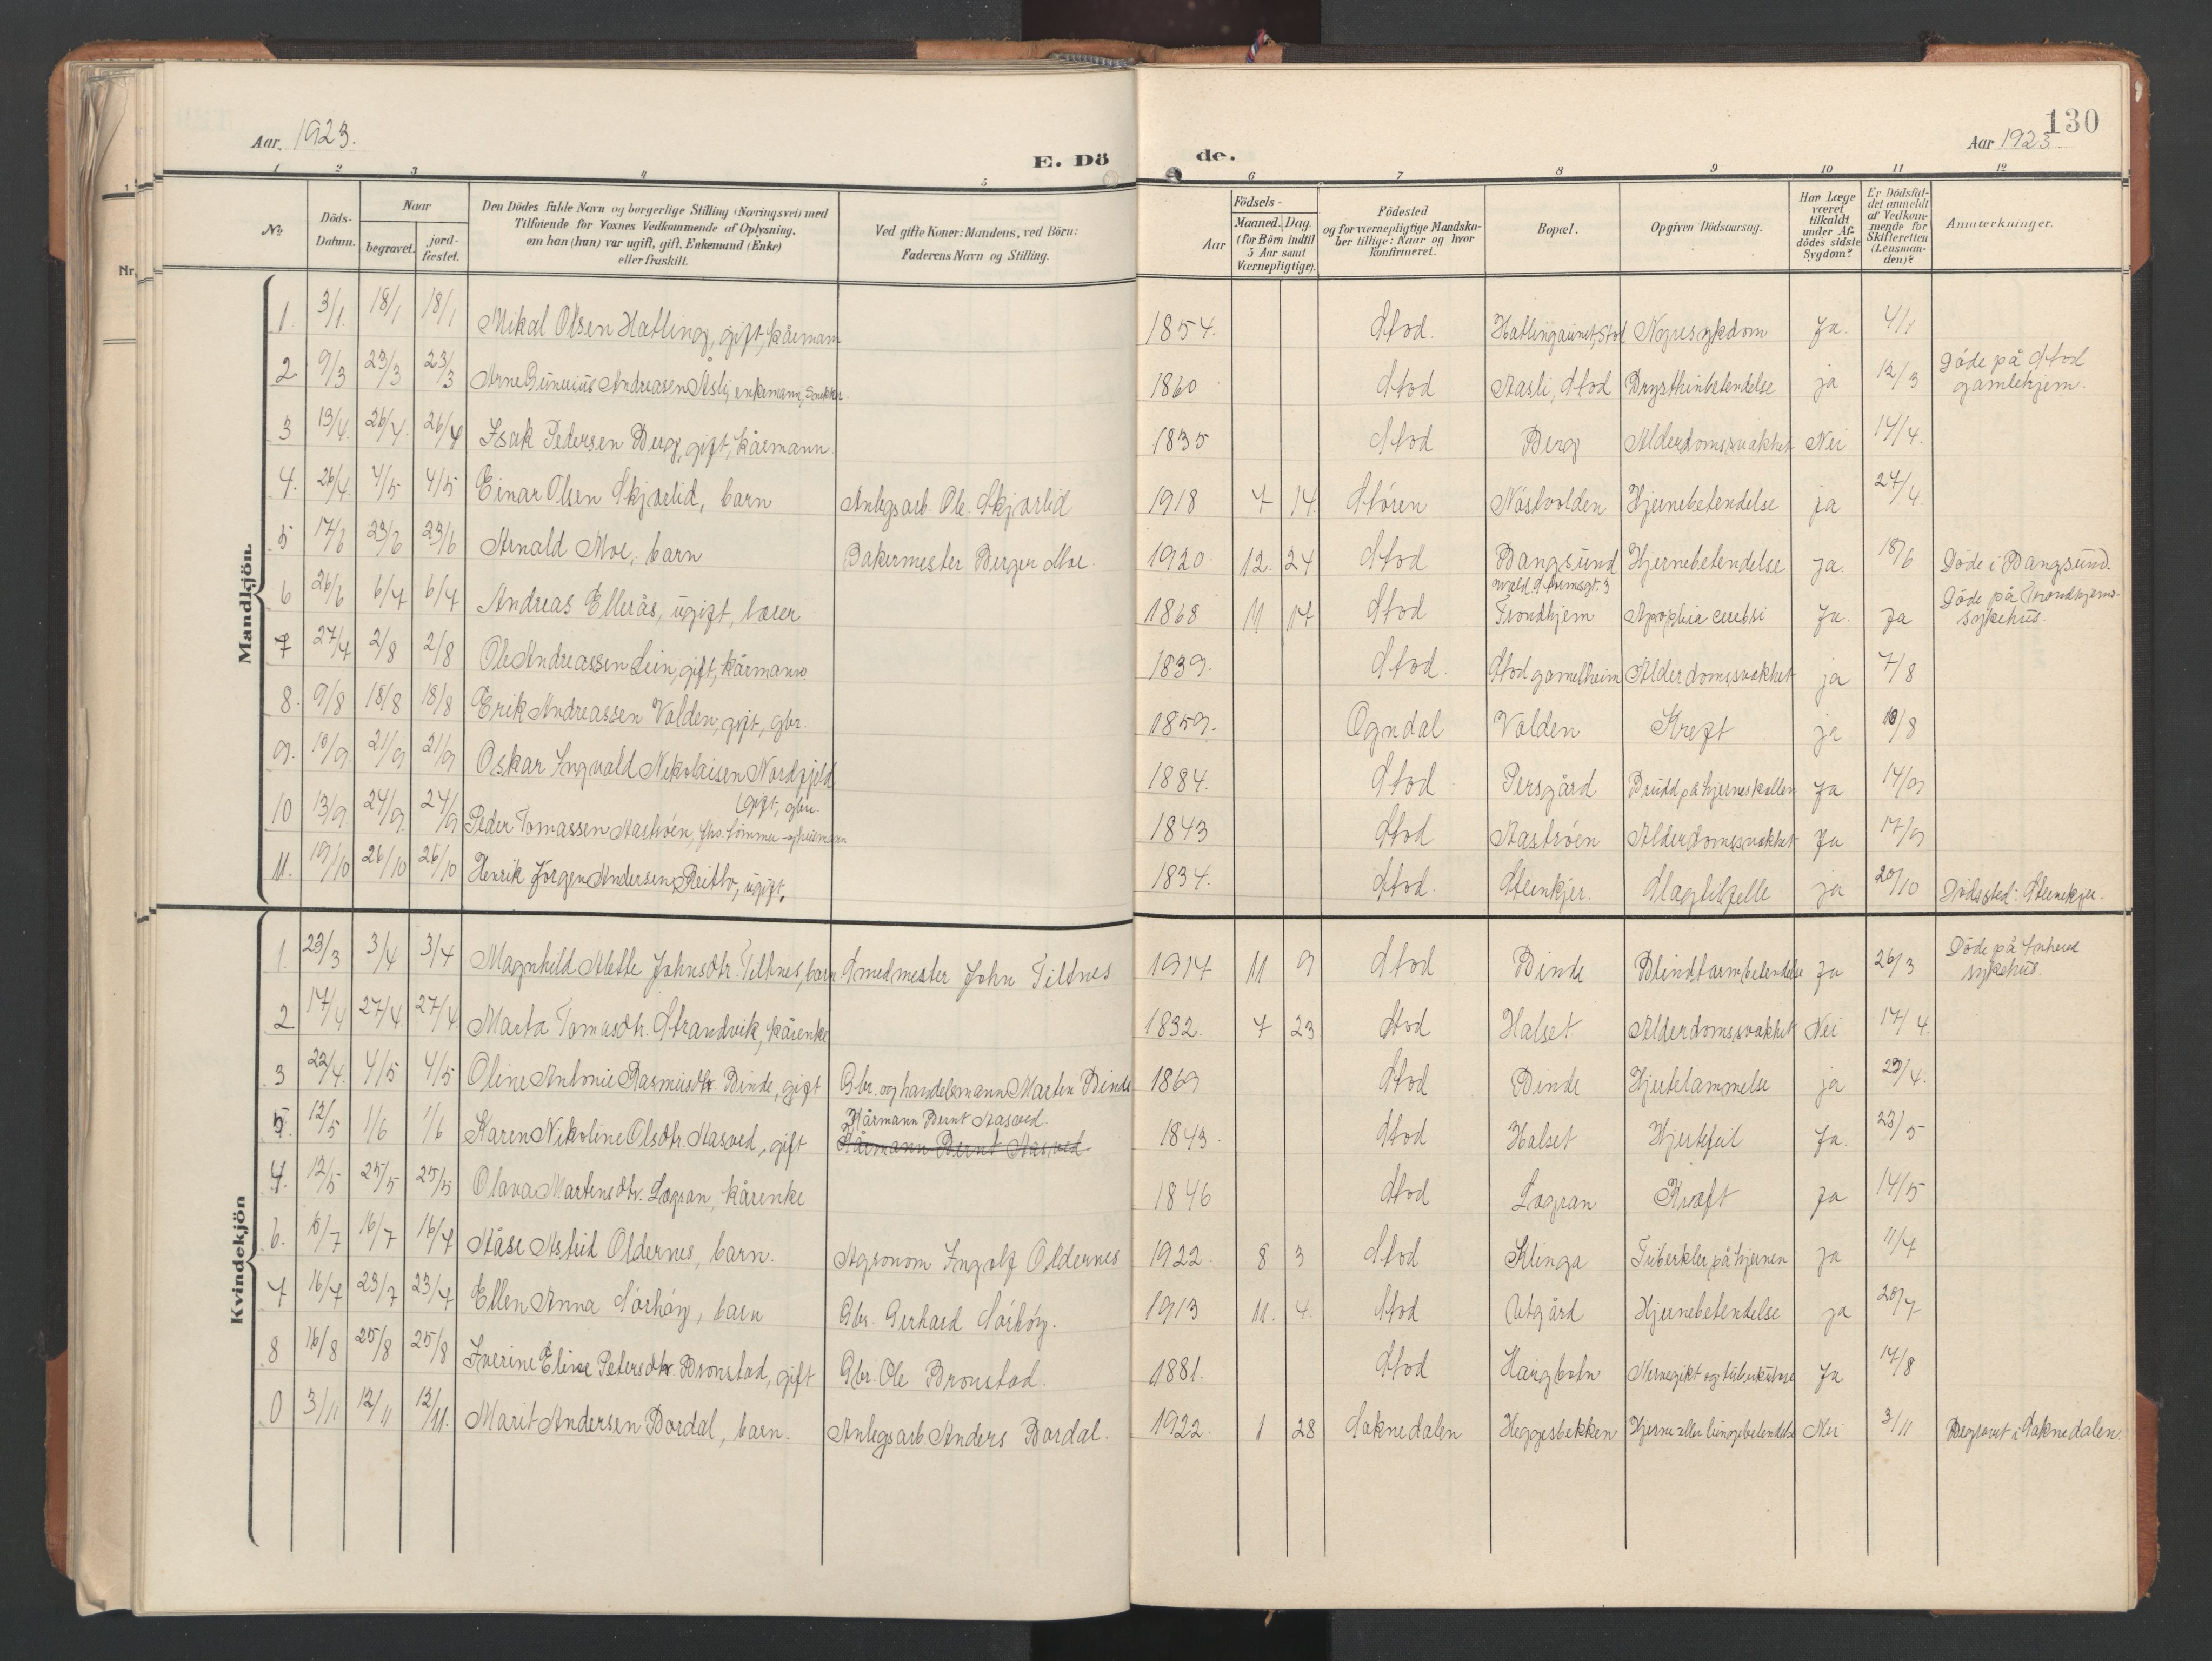 130
Aar 1923.
Aar 1923
E. Dö de.
1 2 3 4 5 6 7 8 9 10 11 12
№ Döds-Datum. Naar begravet. jord-fæstet. Den Dödes fulde Navn og borgerlige Stilling (Næringsvei) med Tilföiende for Voxnes Vedkommende af Oplysning, om han (hun) var ugift, gift, Enkemand (Enke) eller fraskilt. Ved gifte Koner: Mandens, ved Börn: Faderens Navn og Stilling. Födsels- Aar Maaned. Dag. (for Börn indtil 5 Aar samt Værnepligtige). Födested og for værnepligtige Mandskaber tillige: Naar og hvor konfirmeret. Bopæl. Opgiven Dödsaarsag. Har Læge været tilkaldt under Afdödes sidste Sygdom? Er Dödsfaldet anmeldt af Vedkommende for Skifteretten (Lensmanden)? Anmærkninger.
Nr.
Mandkjön.
1. 3/1. 18/1 18/1 Mikal Olsen Hatling, gift, kårmann 1854. Stod. Hatlingaunet, Stod Nyresykdom Ja. 4/1
2. 9/3 23/3 23/3 Arne Gunerius Andreasen Åsli, enkemann, Snekker. 1860 Stod Aasli, Stod Brysthinbetendelse ja 12/3 Döde på Stod gamlehjem.
3 13/4. 26/4. 26/4 Isak Pedersen Berg, gift, kårmann. 1835 Stod Berg Alderdomssvakhet Nei 14/4.
4. 26/4 4/5 4/5 Einar Olsen Skjærlid, barn Anlegsarb. Ole Skjærlid 1918 7 14. Stören Nåstvolden Hjernebetendelse ja 27/4.
5 17/6 23/6 23/6 Arnald Moe, barn Bakermester Berger Moe. 1920. 12. 24 Stod Bangsund Hjernebetendelse Ja. 18/6 Döde i Bangsund.
6 26/6 6/7 6/7 Andreas Elleraas, ugift, lærer 1868 11 17 Stod Trondhjem Apoplxia cerebsi Ja. Ja Döde på Trondhjems sykehus.
7 27/7 2/8 2/8 Ole Andreassen Lein, gift, kårmann. 1839. Stod. Stod gamelheim Alderdomssvakhet ja 7/8
8. 9/8 18/8 18/8 Erik Andreassen Valden, gift, gbr. 1859. Ogndal Valden Kreft ja 10/8
9. 10/9. 21/9 21/9 Oskar Ingvald Nikolaisen Nordfjeld (gift, gbr. 1884. Stod Persgård Brudd på hjerneskallen Ja 14/9
10 13/9 24/9. 24/9 Peder Tomassen Aastrøen, fhv. tömmer- og husmann 1843 Stod Aastrøen Alderdomssvakhet Ja 17/9
11. 19/10 26/10 26/10 Henrik Jörgen Andersen Reitlo, ugift. 1834. Stod. Steinkjer. Slagtilfelle ja 20/10 Dödssted: Steinkjer.
Kvindekjön
1. 23/3 3/4 3/4 Magnhild Mette Johnsdtr. Tiltnes, barn Smedmester John Tiltnes 1917 11 9 Stod Binde Blindtarmbetendelse Ja 26/3 Döde på Inhered sykehus.
2 17/4 27/4. 27/4. Marta Tomasdtr. Strandvik, kårenke 1832. 7 23 Stod Halset Alderdomssvakhet Nei 17/4.
3 22/4. 4/5 4/5 Oline Antonie Rasmusdtr. Binde, gift Gbr. og handelsmann Marten Binde 1869 Stod Binde Hjertelammelse ja 23/4.
5. 12/5 1/6 1/6 Karen Nikoline Olsdtr. Aasved, gift Kårmann Bernt Aasved. Kårmann Bernt Aasved 1843. Stod Halset Hjertefeil Ja. 23/5
4. 12/5 25/5 25/5 Olava Martinsdtr. Lægran, kårenke 1846 Stod Lægran Kræft Ja 14/5
6. 10/7 16/7 16/7 Aåse Astrid Oldernes, barn. Agronom Ingolf Oldernes 1922. 8 3 Stod Klinga Tuberkler på hjernen ja 11/7
7 16/7 23/7 23/7 Ellen Anna Sörhöig, barn Gbr. Gerhard Sörhöig. 1913 11. 4. Stod Utgård Hjernebetendelse ja 20/7
8 16/8 25/8 25/8 Iverine Eline Petersdtr. Bronstad, gift Gbr. Ole Bronstad. 1881. Stod Haugholn Nervegikt og tuberkulose Ja 17/8
0 3/11 12/11 12/11. Marit Andersen Bordal, barn. Anlegsarb. Anders Bordal. 1922. 1 28 Soknedalen Heggesbekken Hjerne- eller lungebetendelse Nei 3/11 Begravet i Soknedalen.